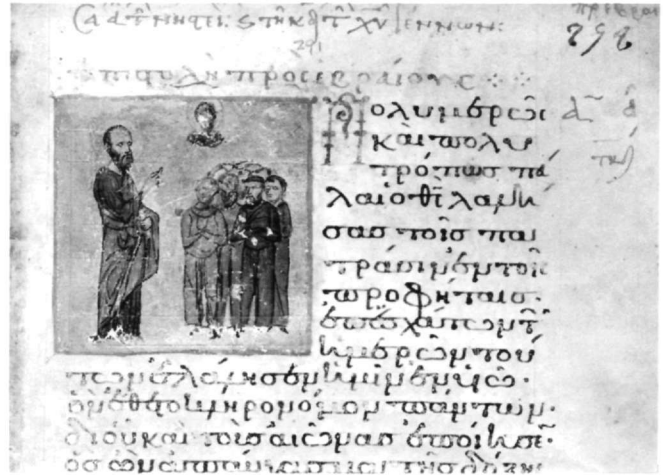 291
ἐπιστολὴ πρὸς ἑβραίους
Πολυμερῶς
καὶ πολυ
τρόπως πά
λαι ὁ θ̅ς̅ λαλή
σας τοῖς πα
τράσιν ἐν τοῖς
προφήταις·
ἐπ' ἐσχάτων τῶν
ἡμερῶν τού
των ἐλάλησεν ἡμῖν ἐν υἱῷ·
ὃν ἔθηκε κληρονόμον πάντων·
δι' οὗ καὶ τοὺς αἰῶνας ἐποίησε·
ὃς ὢν ἀπαύγασμα τῆς δόξης